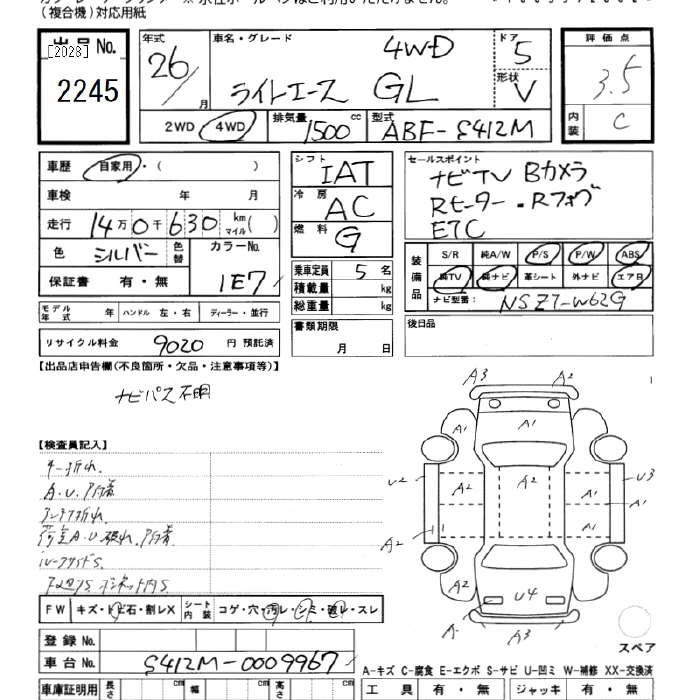 (複合機)対応用紙
出品No. 年式 車名・グレード 4WD ドア 5 評価点
[2028] 26/ 月 ライトエース GL 形状 V 3.5
2245 2WD 4WD 排気量 1500 cc 型式 ABF-S412M 内装 C
車歴 自家用・( )
シフト IAT
セールスポイント ナビTV Bカメラ
車検 年 月
冷房 AC
Rモーター・Rフォグ
走行 14万0千630 km マイル( )
燃料 G
ETC
色 シルバー 色替 カラーNo. 1E7
保証書 有・無
乗車定員 5 名
積載量 kg
総重量 kg
装備品 S/R 純A/W P/S P/W ABS
純TV 純ナビ 革シート 外ナビ エアB
ナビ型番: NSZT-W62G
モデル年式 年 ハンドル 左・右 ディーラー・並行
書類期限 月 日
後日品
リサイクル料金 9020 円 預託済
【出品店申告欄(不良箇所・欠品・注意事項等)】
ナビパス不明
【検査員記入】
キー折れ
A.U.
アンテナ折れ
A3 A2
A1 A1
U2 A2 A1 U3
A1
A2 A1
A2 U4
A A3
FW キズ・トビ石・割レX シート内装 コゲ・穴・汚レ・シミ・破レ・スレ
スペア
登録No.
車台No. S412M-0009967
A-キズ C-腐食 E-エクボ S-サビ U-凹ミ W-補修 XX-交換済
車庫証明用 長さ cm 幅 cm 高さ cm 工具 有・無 ジャッキ 有・無